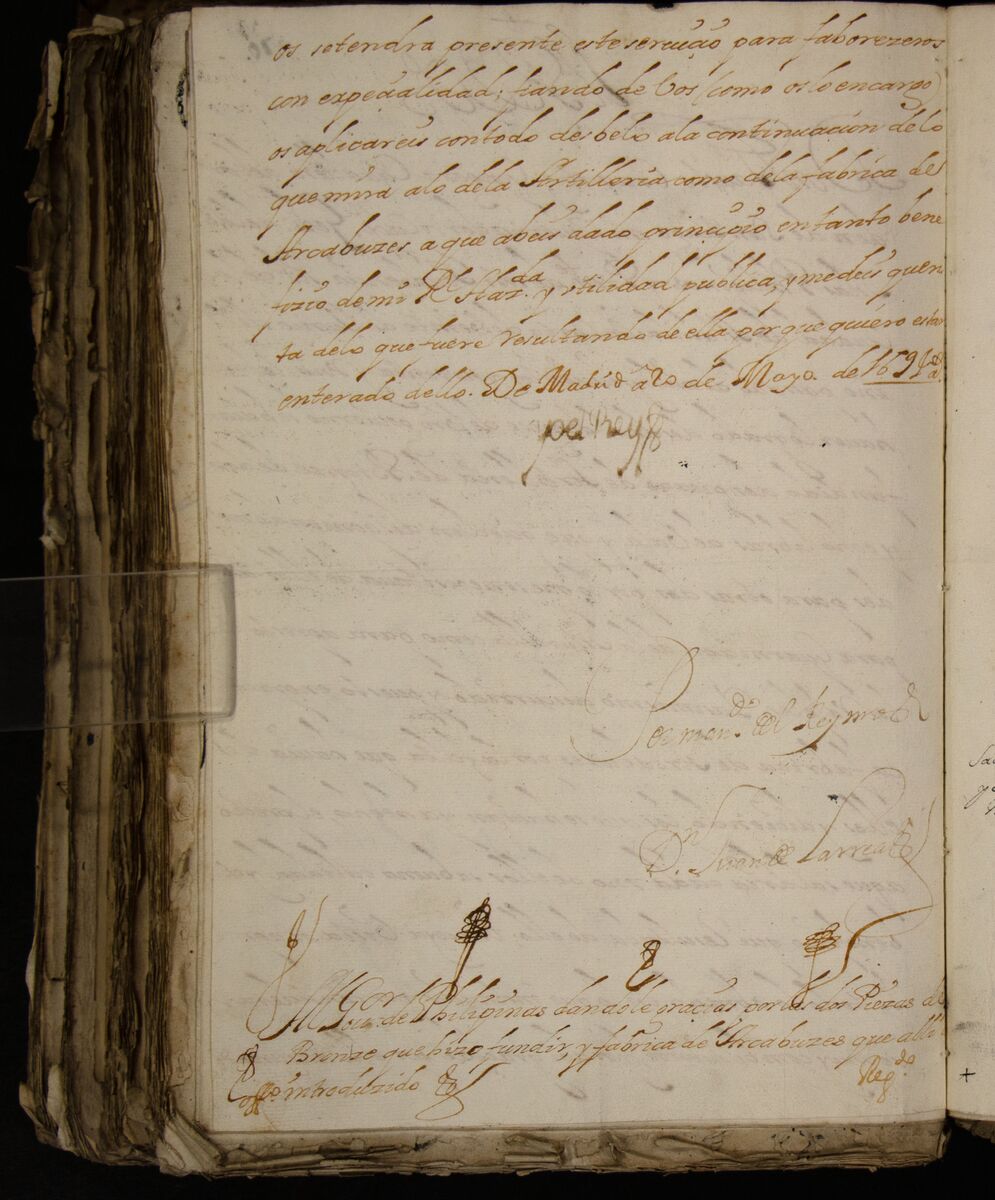 os setendra presente este seruiçio para faborezeros
con expeçialidad; fiando de Vos (como os lo encargo)
os aplicareis con todo desbelo ala continuaçion delo
que mira alo dela Artilleria como dela fabrica de
Arcabuzes a que abeis dado prinçipio en tanto bene
fizio de mi Rl Hazda. y vtilidad publica, y me deis quen
ta delo que fuere resultando de ella porque quiero estar
enterado dello. De Madrid a 20 de Mayo. de 169
yo el Rey
Por mando. del Rey nro sr
Dn. Juan de Larrea
Al Gour. de Philipinas dandole graçias por las dos Piezas de
Bronze que hizo fundir, y fabrica de Arcabuzes que alli
introduzido
Regdo